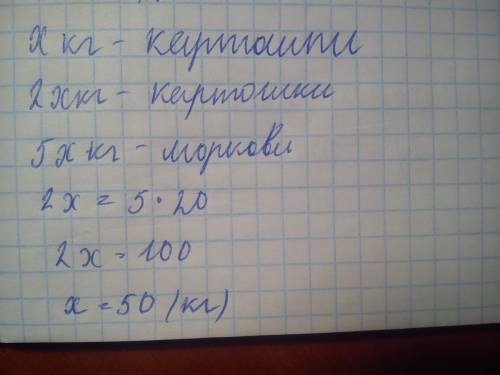 х кг - картошки
2х кг - картошки
5х кг - моркови
2х = 5 · 20
2х = 100
х = 50 (кг)